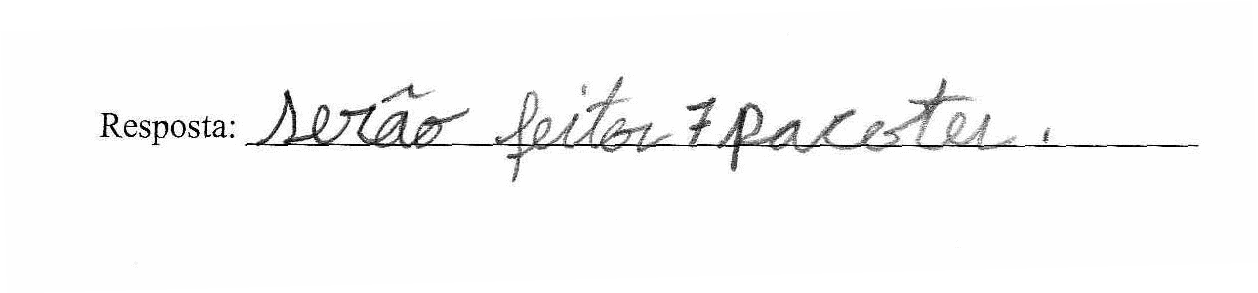 Resposta: serão feitos 7 pacotes.